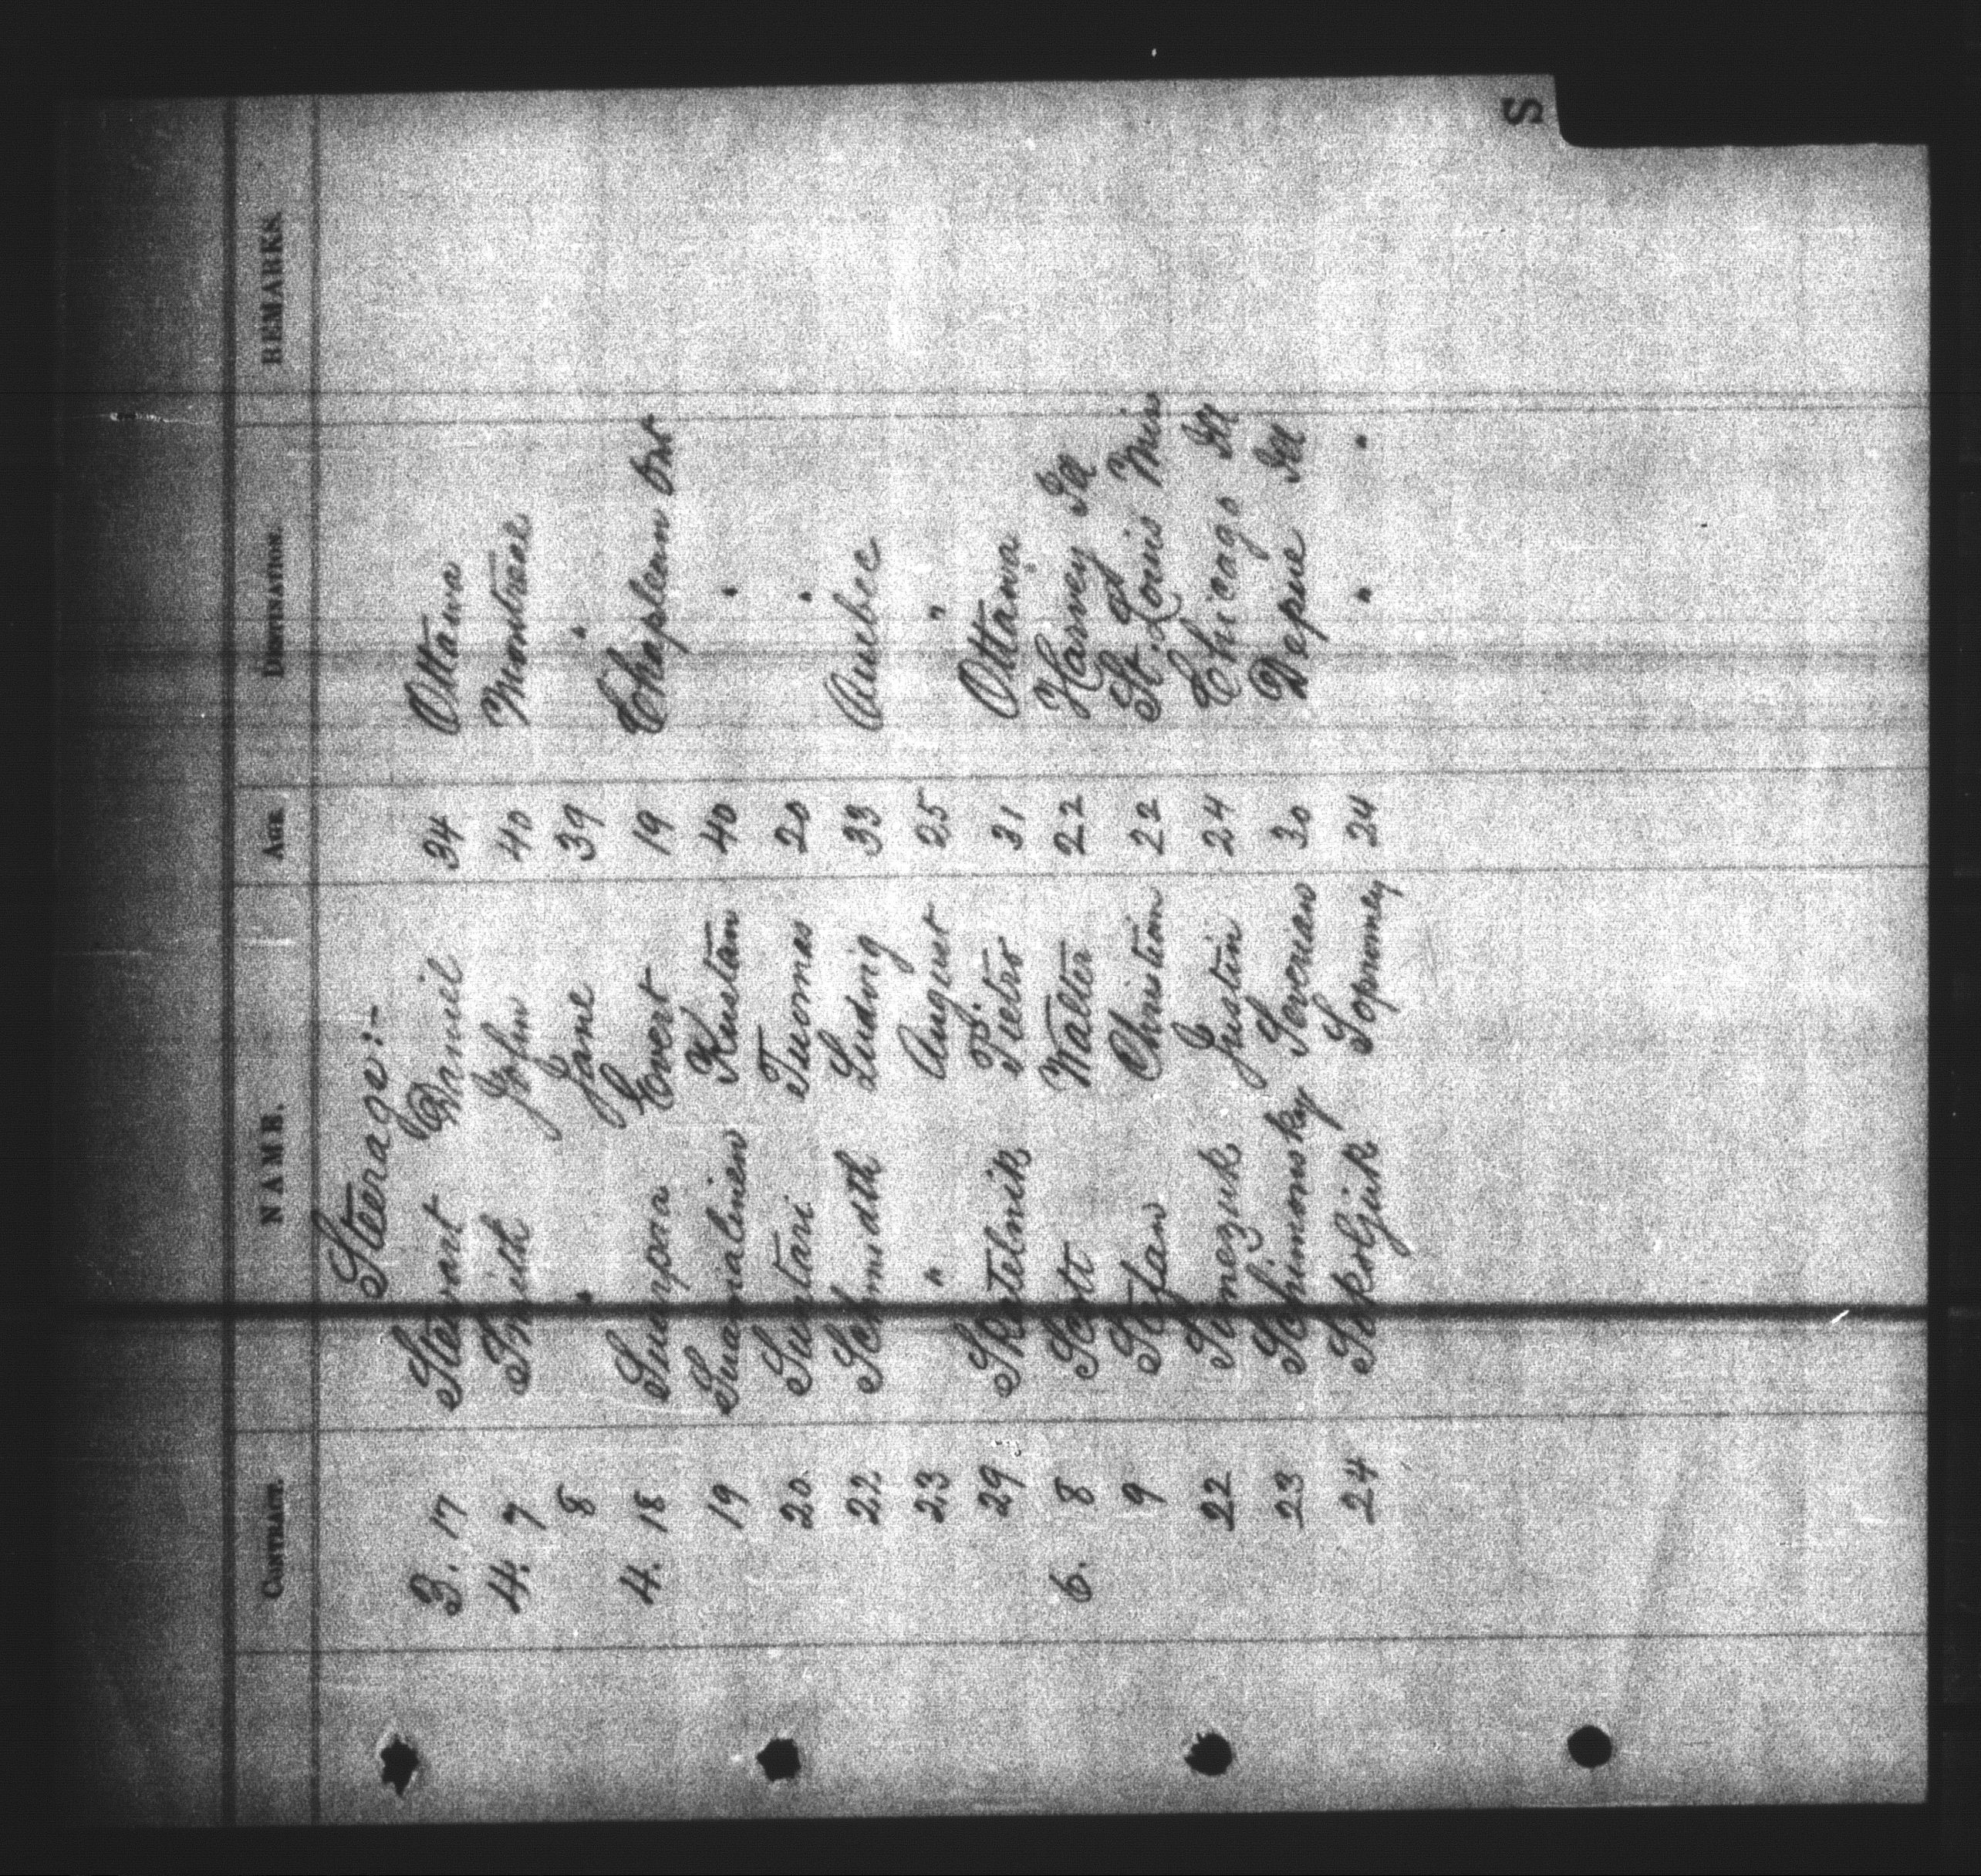 S
CONTRACT. NAME. AGE DESTINATION. REMARKS.
Steerage:-
3. 17 Stewart Daniel 34 Ottawa
4. 7 Smith John 40 Montreal
8 " Jane 39 "
4. 18 Suanpaa Evert 19 Chapleau Ont
19 Suamalinen Kustan 40 "
20 Suntari Tuomas 20 "
22 Schmidth Ludvig 33 Quebec
23 " August 25 "
29 Skatelnik Pietro 31 Ottawa
6. 8 Scott Walter 22 Harvey Ill
9 Stefan Christian 22 St. Louis Miss
22 Simezuk Justin 24 Chicago Ill
23 Schimonsky Severian 30 Depue Ill
24 Sokoljuk 34 " "